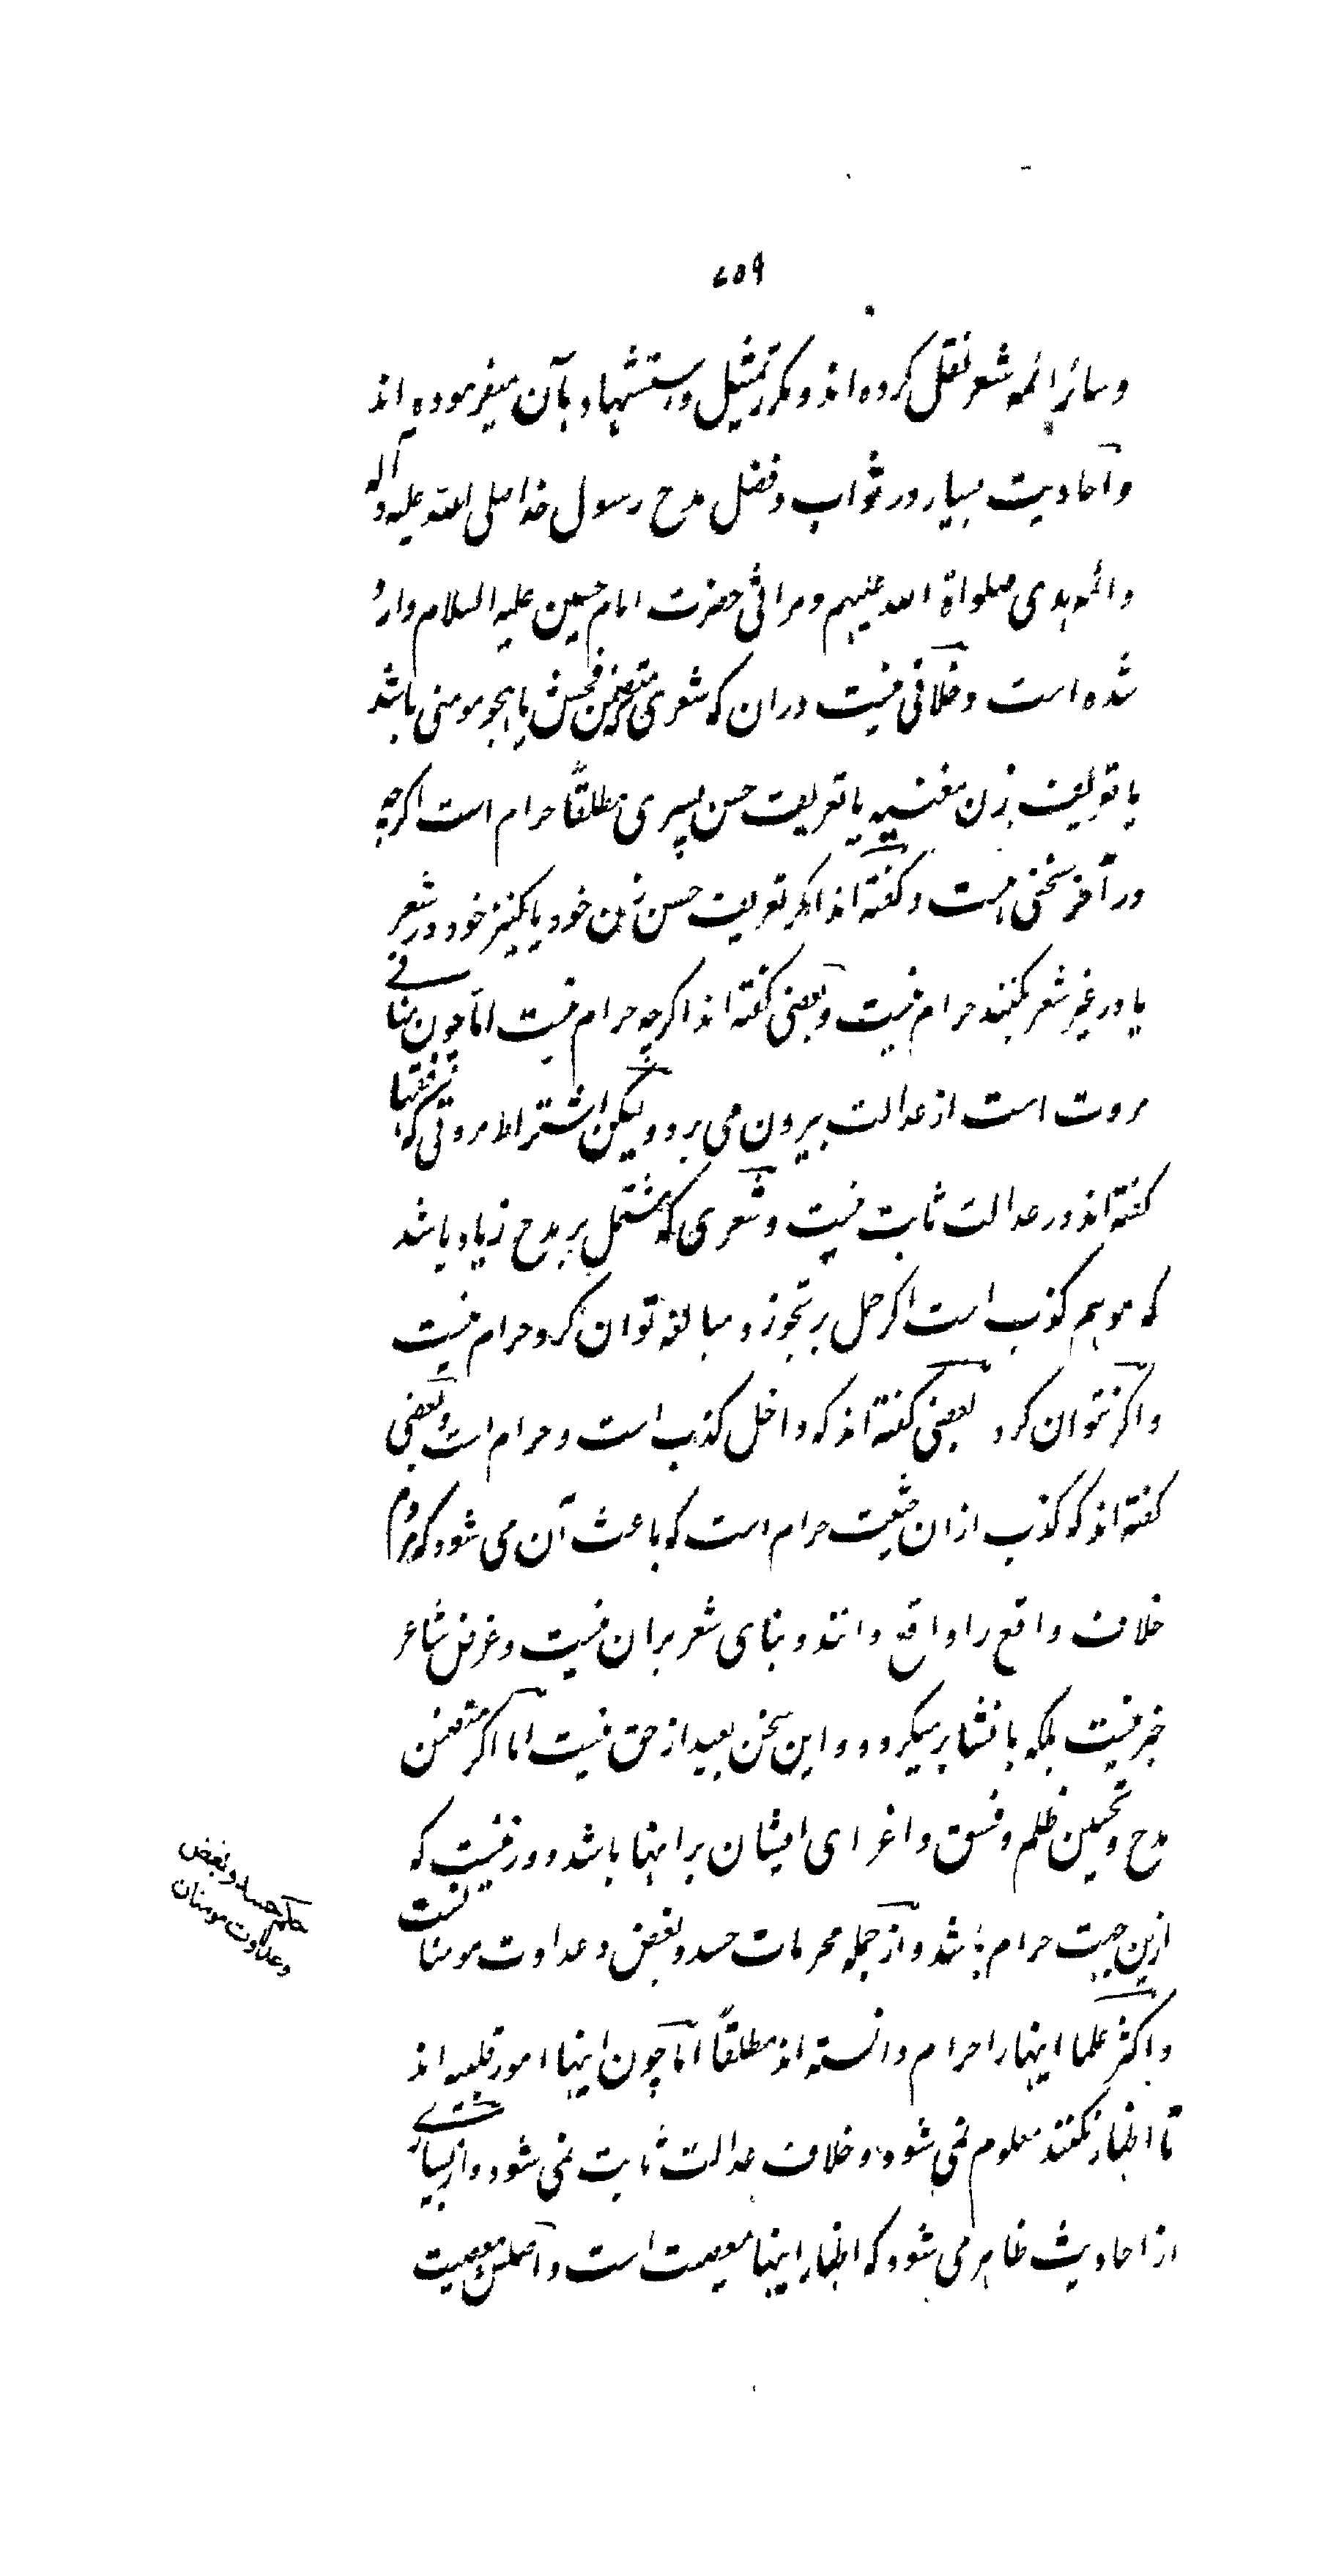 ۶۵۹
و سائر ائمه شعر نقل کرده‌اند و مکرر تمثیل و استشهاد بآن میفرموده‌اند
و احادیث بسیار در ثواب و فضل مدح رسول خدا صلی الله علیه و آله
و ائمه هدی صلواة الله علیهم و مراثی حضرت امام حسین علیه السلام وارد
شده است و خلافی نیست در ان که شعری متضمن فحش یا هجو مومنی باشد
یا تعریف زن مغنیه یا تعریف حسن پسری مطلقاً حرام است اکرچه
در آخر سخنی هست و کفته‌اند اکر تعریف حسن زن خود یا کنیز خود در شعر
یا در غیر شعر بکنند حرام نیست و بعضی کفته‌اند اکرچه حرام نیست اما چون منافی
مروت است از عدالت بیرون می برد و لیکن اشتراط مروتی که فقها
کفته‌اند در عدالت ثابت نیست و شعری که مشتمل بر مدح زیاد باشد
که موهم کذب است اکر حمل بر تجوز و مبالغه توان کرد حرام نیست
و اکر نتوان کرد بعضی کفته‌اند که داخل کذب است و حرام است و بعضی
کفته‌اند که کذب از ان حیثیت حرام است که باعث آن می شود که مردم
خلاف واقع را واقع دانند و بنای شعر بر ان نیست و غرض شاعر
خبر نیست بلکه بانشا برمیکردد و این سخن بعید از حق نیست اما اکر متضمن
مدح و تحسین ظلم و فسق و اغرای ایشان بر اینها باشد دور نیست که
ازین جهت حرام باشد و از جمله محرمات حسد و بغض و عداوت مومنانست
حکم حسد و بغض
و عداوت مومنان
و اکثر علما اینها را حرام دانسته‌اند مطلقاً اما چون اینها امور قلبیه‌اند
تا اظهار نکنند معلوم نمی شود و خلاف عدالت ثابت نمی شود و از بسیاری
از احادیث ظاهر می شود که اظهار اینها معصیت است و اصلش معصیت